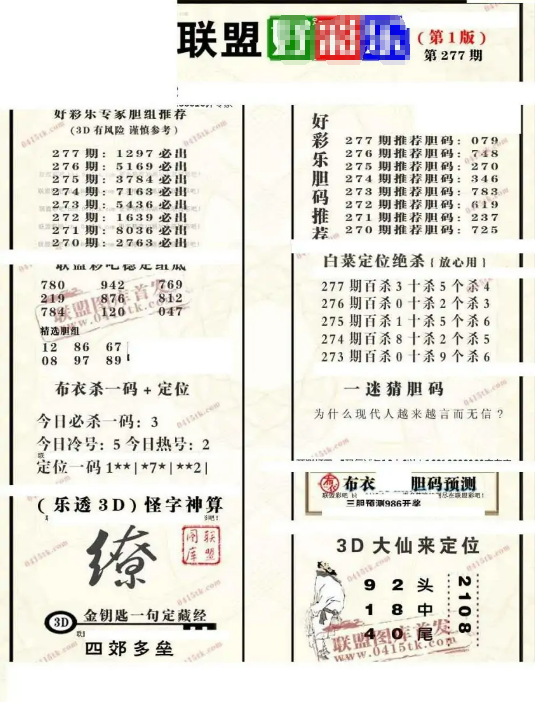 联盟 好彩乐 (第1版)
第277期
好彩乐专家胆组推荐
(3D有风险 谨慎参考)
277期: 1297必出
276期: 5169必出
275期: 3784必出
274期: 7163必出
273期: 5436必出
272期: 1639必出
271期: 8036必出
270期: 2763必出
联盟彩吧稳定组底
780 942 769
219 876 812
784 120 047
精选胆组
12 86 67
08 97 89
布衣杀一码+定位
今日必杀一码: 3
今日冷号: 5 今日热号: 2
定位一码 1**|*7*|**2|
(乐透3D)怪字神算
联盟图库
3D 金钥匙一句定藏经
四郊多垒
好彩乐胆码推荐
277期推荐胆码: 079
276期推荐胆码: 748
275期推荐胆码: 270
274期推荐胆码: 346
273期推荐胆码: 783
272期推荐胆码: 619
271期推荐胆码: 237
270期推荐胆码: 725
白菜定位绝杀(放心用)
277期百杀3十杀5个杀4
276期百杀0十杀2个杀3
275期百杀1十杀5个杀6
274期百杀8十杀2个杀5
273期百杀0十杀9个杀6
一迷猜胆码
为什么现代人越来越言而无信?
布衣 布衣 胆码预测
三胆预测986开奖
3D大仙来定位
9 2 头
1 8 中
4 0 尾
2108
联盟图库首发
www.0415tk.com
联盟图库首发
www.0415tk.com